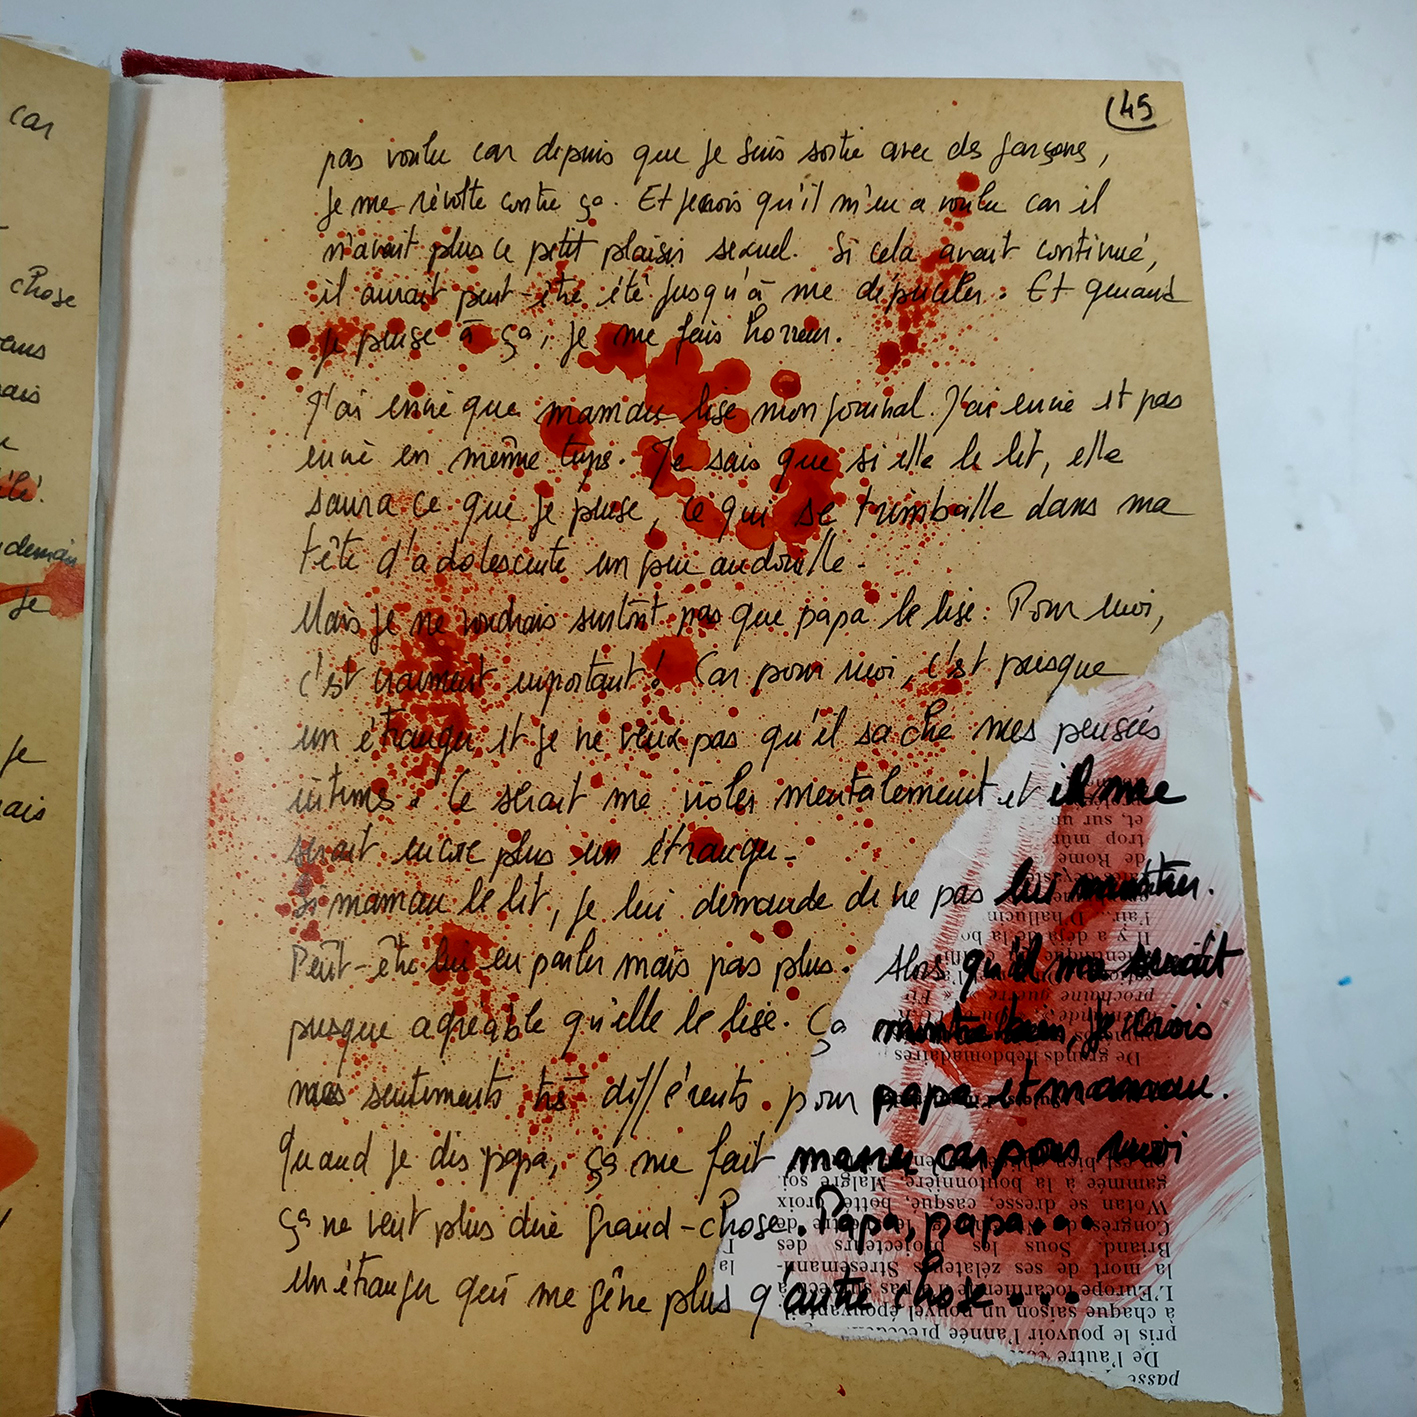 car
chose
ais
demain
je
je
ais
45
pas voulu car depuis que je suis sortie avec des garçons,
je me révolte contre ça. Et je crois qu'il m'en a voulu car il
n'avait plus ce petit plaisir sexuel. Si cela avait continué,
il aurait peut-être été jusqu'à me dépuceler. Et quand
je pense à ça, je me fais horreur.
J'ai envie que maman lise mon journal. J'ai envie et pas
envie en même temps. Je sais que si elle le lit, elle
saura ce que je pense, ce qui se trimballe dans ma
tête d'adolescente un peu andouille.
Mais je ne voudrais surtout pas que papa le lise. Pour moi,
c'est vraiment important! Car pour moi, c'est presque
un étranger et je ne veux pas qu'il sache mes pensées
intimes. Ce serait me violer mentalement et il me
serait encore plus un étranger.
Si maman le lit, je lui demande de ne pas lui montrer.
Peut-être lui en parler mais pas plus. Alors qu'il me serait
presque agréable qu'elle le lise. Ça montre bien, je crois
mes sentiments très différents pour papa et maman.
Quand je dis papa, ça me fait marrer car pour moi
ça ne veut plus dire grand-chose. Papa, papa...
Un étranger qui me gêne plus q'autre chose....
passe
De l'autre
pris le pouvoir l'année précéden
à chaque saison un nouvel épouvantail
L'Europe
la mort de ses zélateurs Stresemann-
Briand. Sous les projecteurs des
Congrès de
Wotan se dresse, casque, botté, croix
gammée à la boutonnière. Malgré
De grands hebdomadaires
prochaine guerre
Il y a déjà de la bo
l'air. D'hallucin
de Rome
trop mûr
et, sur un